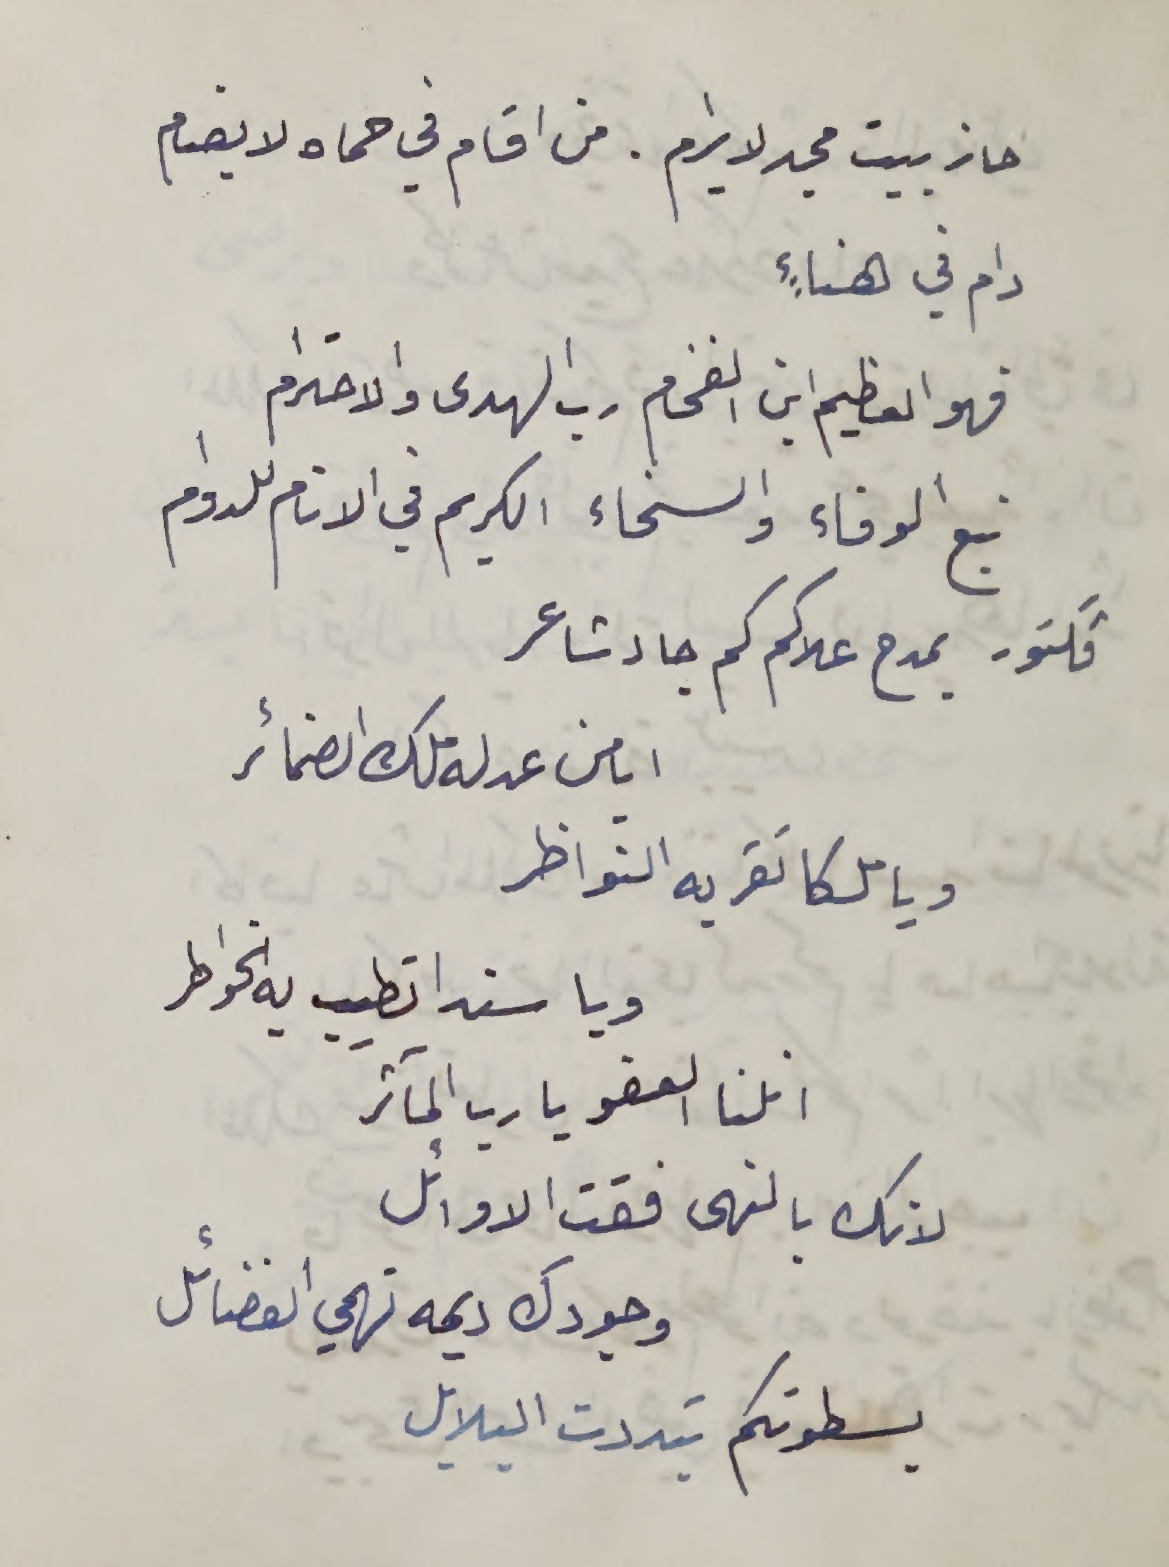 حاز بيت مجد لا يرام . من اقام في حماه لا يضام
دام في هناءٍ
فهو العظيم ابن الفخام رب الهدى والاحترام
نبع الوفاء والسخاء الكريم في الانام للدوام
فكتور يمدح علاكم كم جاد شاعر
ايا من عدله ملك الضمائر
ويا ملكا تقر به النواظر
ويا سندا تطيب به الخواطر
انلنا العفو يا رب المآثر
لانك بالنهى فقت الاوائل
وجودك ديمه تهمي الفضائل
بسطوتكم تبددت البلابل